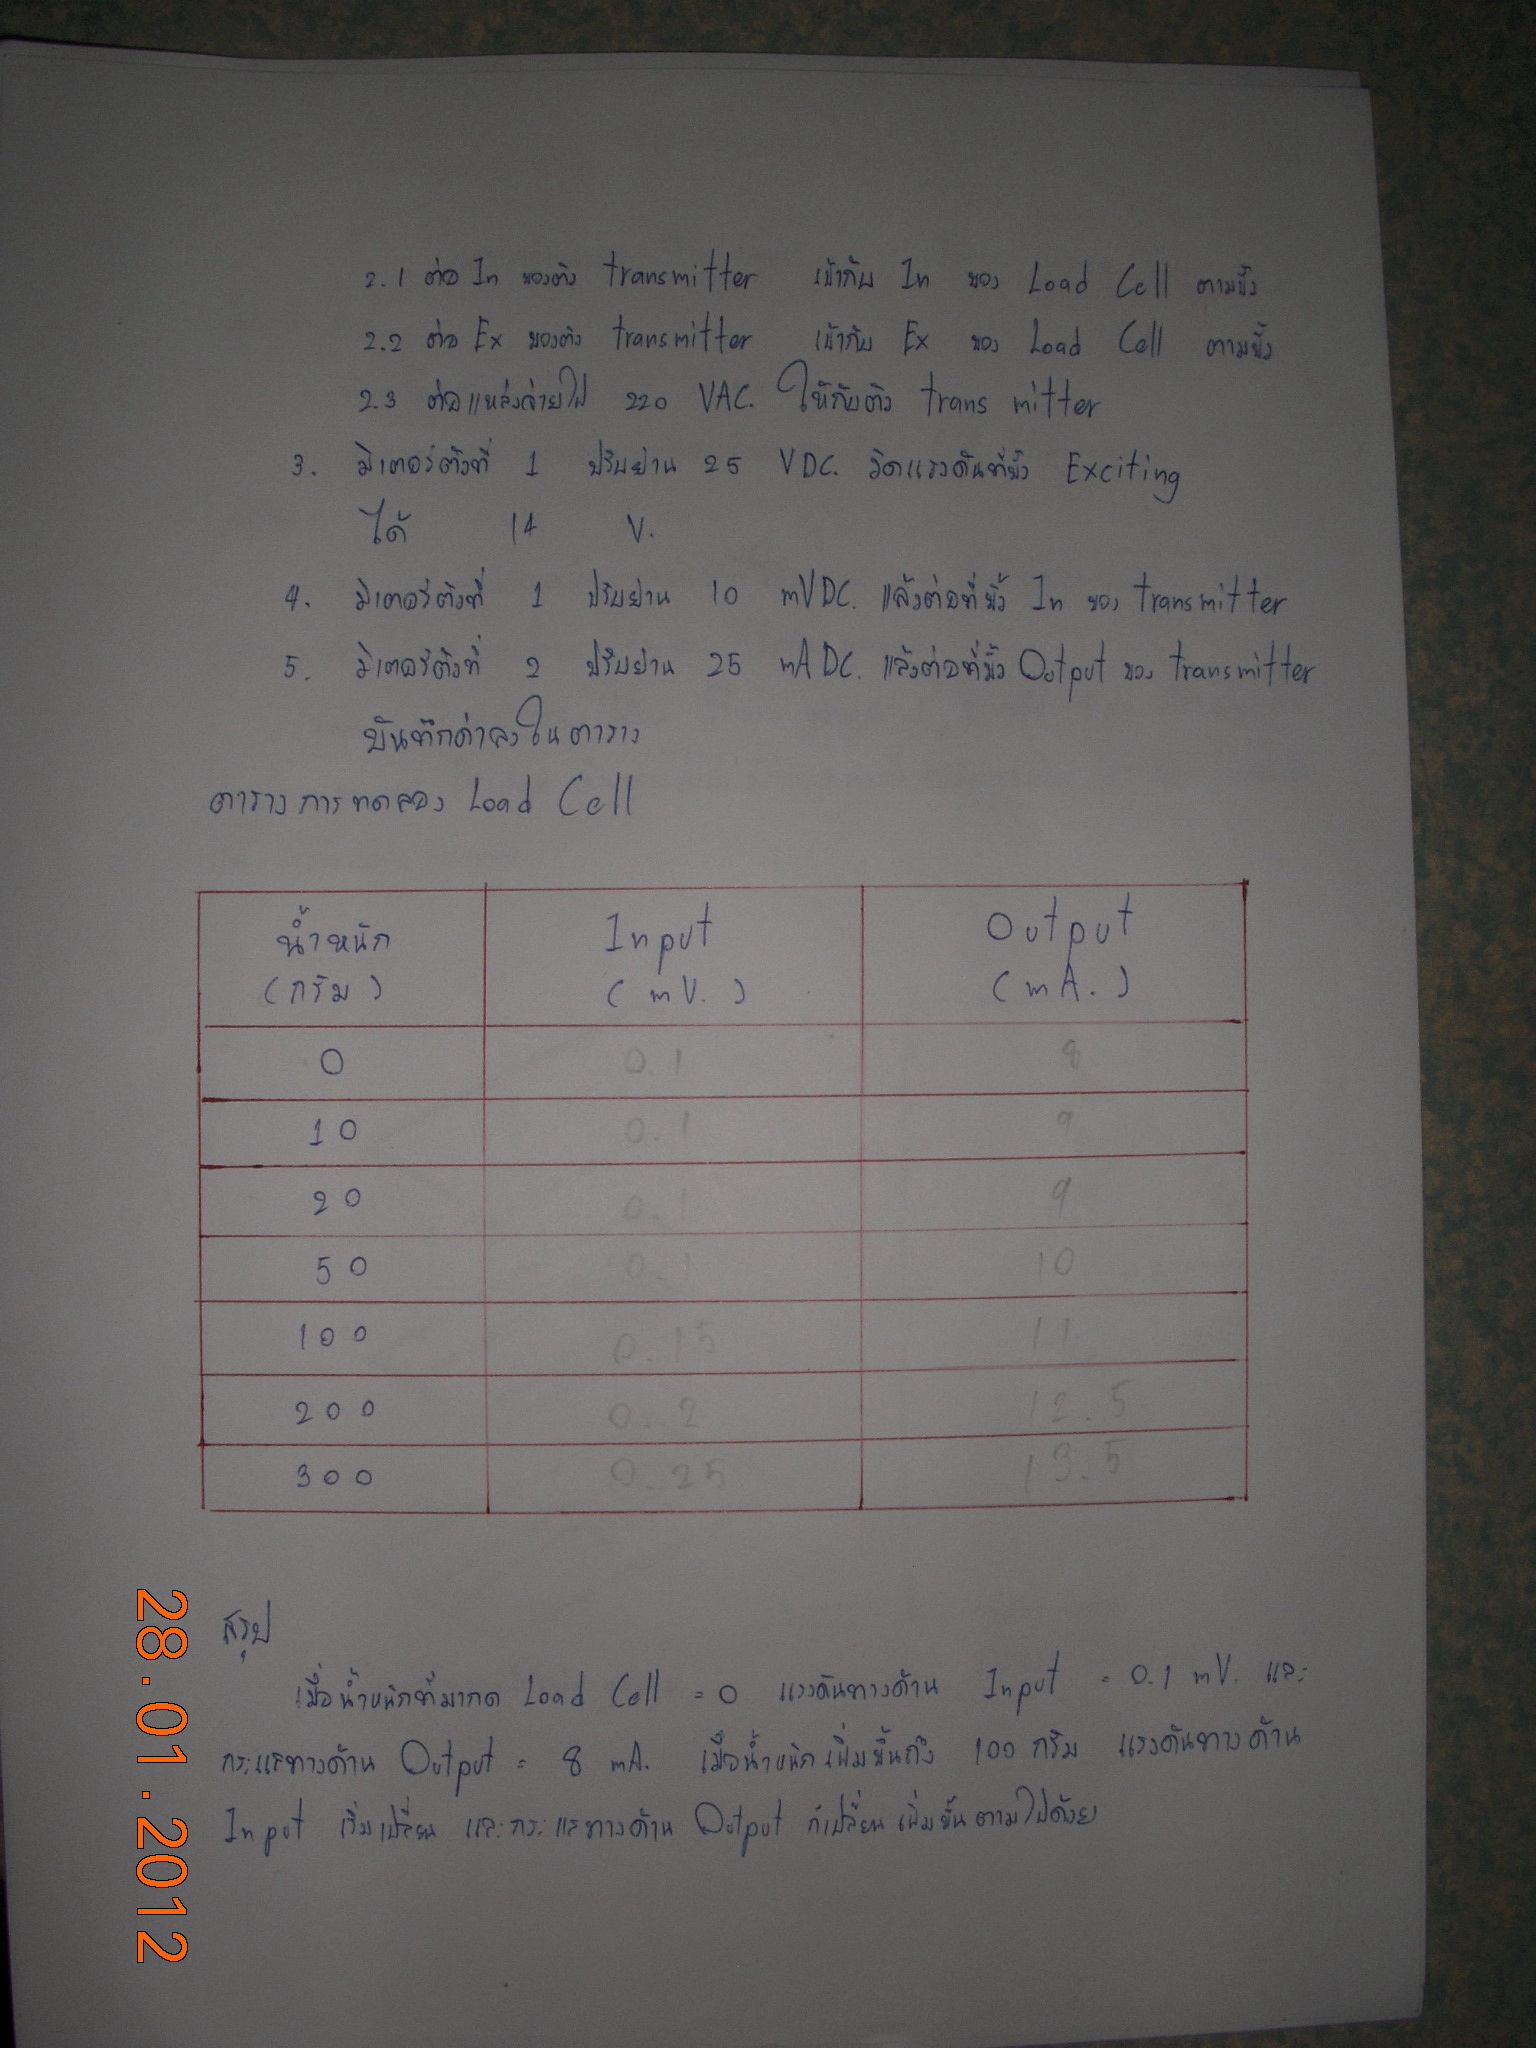 2.1 ต่อ In ของตัว transmitter เข้ากับ In ของ Load Cell ตามขั้ว
2.2 ต่อ Ex ของตัว transmitter เข้ากับ Ex ของ Load Cell ตามขั้ว
2.3 ต่อแหล่งจ่ายไฟ 220 VAC. ให้กับตัว trans mitter
3. มิเตอร์ตัวที่ 1 ปรับย่าน 25 VDC. วัดแรงดันที่ขั้ว Exciting
ได้ 14 V.
4. มิเตอร์ตัวที่ 1 ปรับย่าน 10 mVDC. แล้วต่อที่ขั้ว In ของ transmitter
5. มิเตอร์ตัวที่ 2 ปรับย่าน 25 mADC. แล้วต่อที่ขั้ว Output ของ transmitter
บันทึกค่าลงในตาราง
ตารางการทดลอง Load Cell
น้ำหนัก Input Output
(กรัม) (mV.) (mA.)
0 0.1 8
10 0.1 9
20 0.1 9
50 0.1 10
100 0.15 11
200 0.2 12.5
300 0.25 13.5
สรุป
เมื่อน้ำหนักที่มากด Load Cell = 0 แรงดันทางด้าน Input = 0.1 mV. และ
กระแสทางด้าน Output = 8 mA. เมื่อน้ำหนักเพิ่มขึ้นถึง 100 กรัม แรงดันทางด้าน
Input เริ่มเปลี่ยน และกระแสทางด้าน Output ก็เปลี่ยนเพิ่มขึ้นตามไปด้วย
28.01.2012